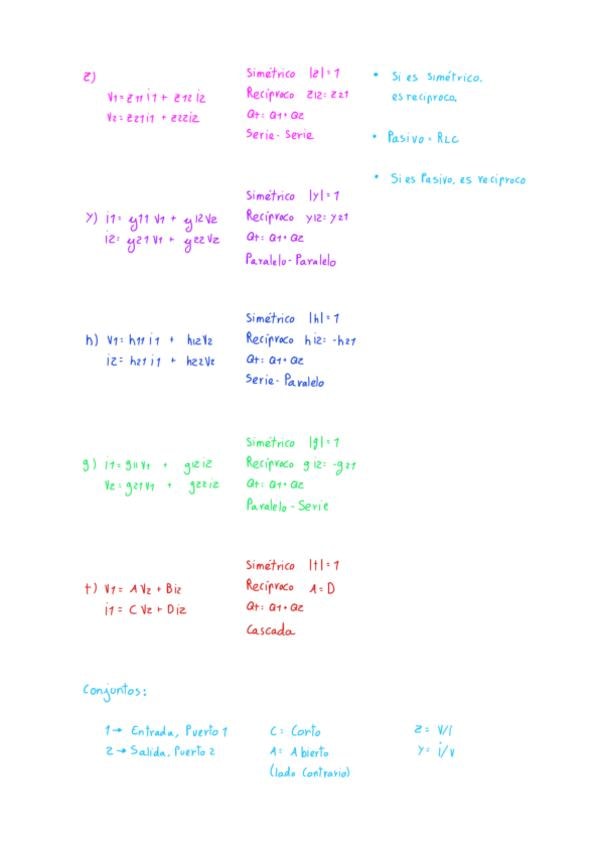 z)
V1 = Z11 i1 + Z12 i2
V2 = Z21 i1 + Z22 i2
Simétrico |z| = 1
Recíproco Z12 = Z21
Qt: Q1 + Q2
Serie - Serie
• Si es Simétrico.
es recíproco.
• Pasivo = RLC
• Si es Pasivo, es recíproco
Y) i1 = y11 V1 + y12 V2
i2 = y21 V1 + y22 V2
Simétrico |y| = 1
Recíproco y12 = y21
Qt: Q1 + Q2
Paralelo - Paralelo
h) V1 = h11 i1 + h12 V2
i2 = h21 i1 + h22 V2
Simétrico |h| = 1
Recíproco h12 = -h21
Qt: Q1 + Q2
Serie - Paralelo
g) i1 = g11 V1 + g12 i2
V2 = g21 V1 + g22 i2
Simétrico |g| = 1
Recíproco g12 = -g21
Qt: Q1 + Q2
Paralelo - Serie
t) V1 = A V2 + B i2
i1 = C V2 + D i2
Simétrico |t| = 1
Recíproco A = D
Qt: Q1 + Q2
Cascada
Conjuntos:
1 → Entrada, Puerto 1
2 → Salida, Puerto 2
C = Corto
A = Abierto
(lado Contrario)
Z = V/I
Y = i/v